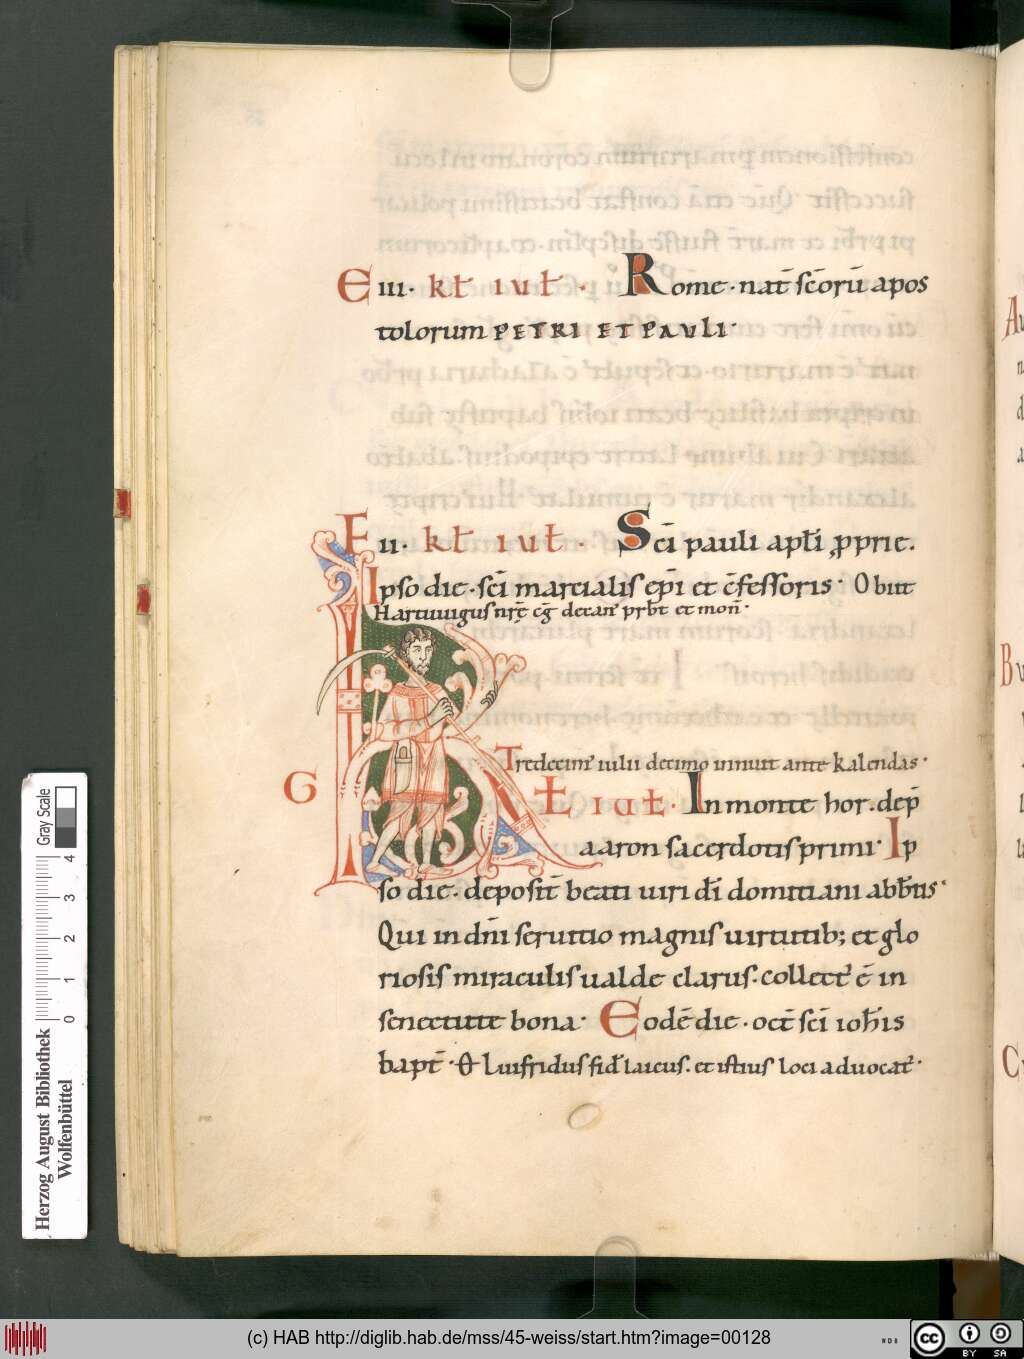 E III· kł iuł · Rome · nat̄ sc̄orū apos
tolorum PETRI ET PAULI·
F II· kł iuł · Sc̄i pauli apłi ꝓprie.
Ipso die · sc̄i martialis ep̄i et c̄fessoris· Obiit
Hartuuigus nr̄ę cḡ decan' prb̄t et mon̄·
Tredecim' iulii decimo innuit ante kalendas·
G KŁ iuł · In monte hor. dep̄
aaron sacerdotis primi· Ip
so die · deposit̄ beati uiri dī domitiani abb̄tis·
Qui in dn̄i seruitio magnis uirtutib; et glo
riosis miraculis ualde clarus · collect' ē in
senectute bona· Eodē die · oct̄ sc̄i ioh̄is
bapt̄ · O Luifridus fid' laicus. et istius loci aduocat'·
Herzog August Bibliothek
Wolfenbüttel
0 1 2 3 4
Gray Scale
(c) HAB http://diglib.hab.de/mss/45-weiss/start.htm?image=00128
WDB
cc BY SA